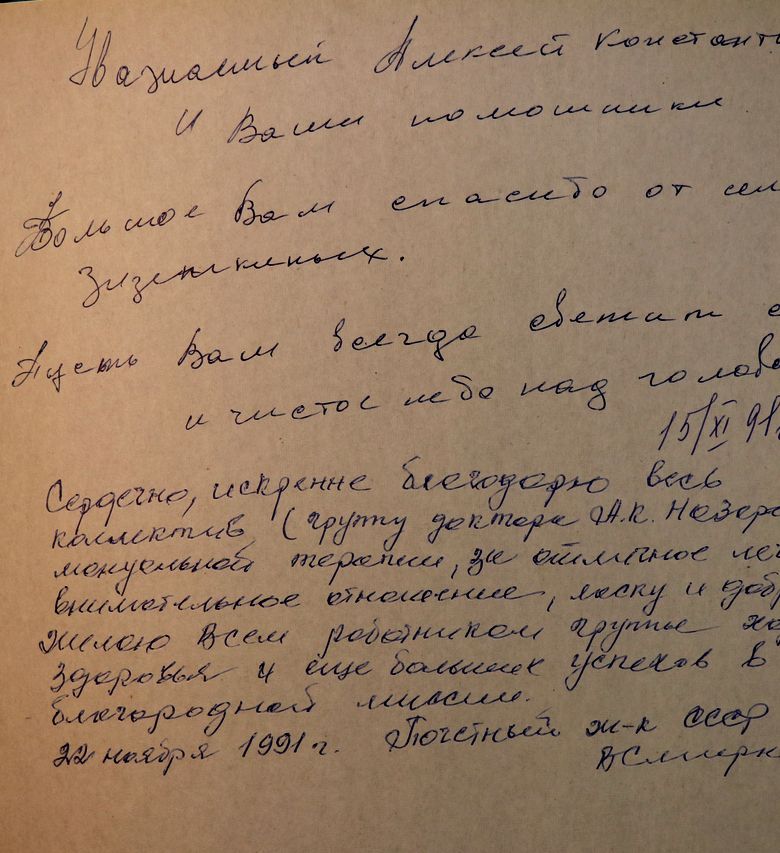 Уважаемый Алексей Констант
и Ваши помошники
Большое Вам спасибо от сем
Пусть Вам всегда светит с
и чистое небо над голово
15/XI 91
Сердечно, искренне благодарю весь
коллектив, (группу доктора А.К. Назаро
мануальной терапии, за отличное леч
внимательное отношение, ласку и добр
Желаю всем работникам группы
здоровья и еще больших успехов в
благородной миссии.
22 ноября 1991 г. Почетный ж-к СССР